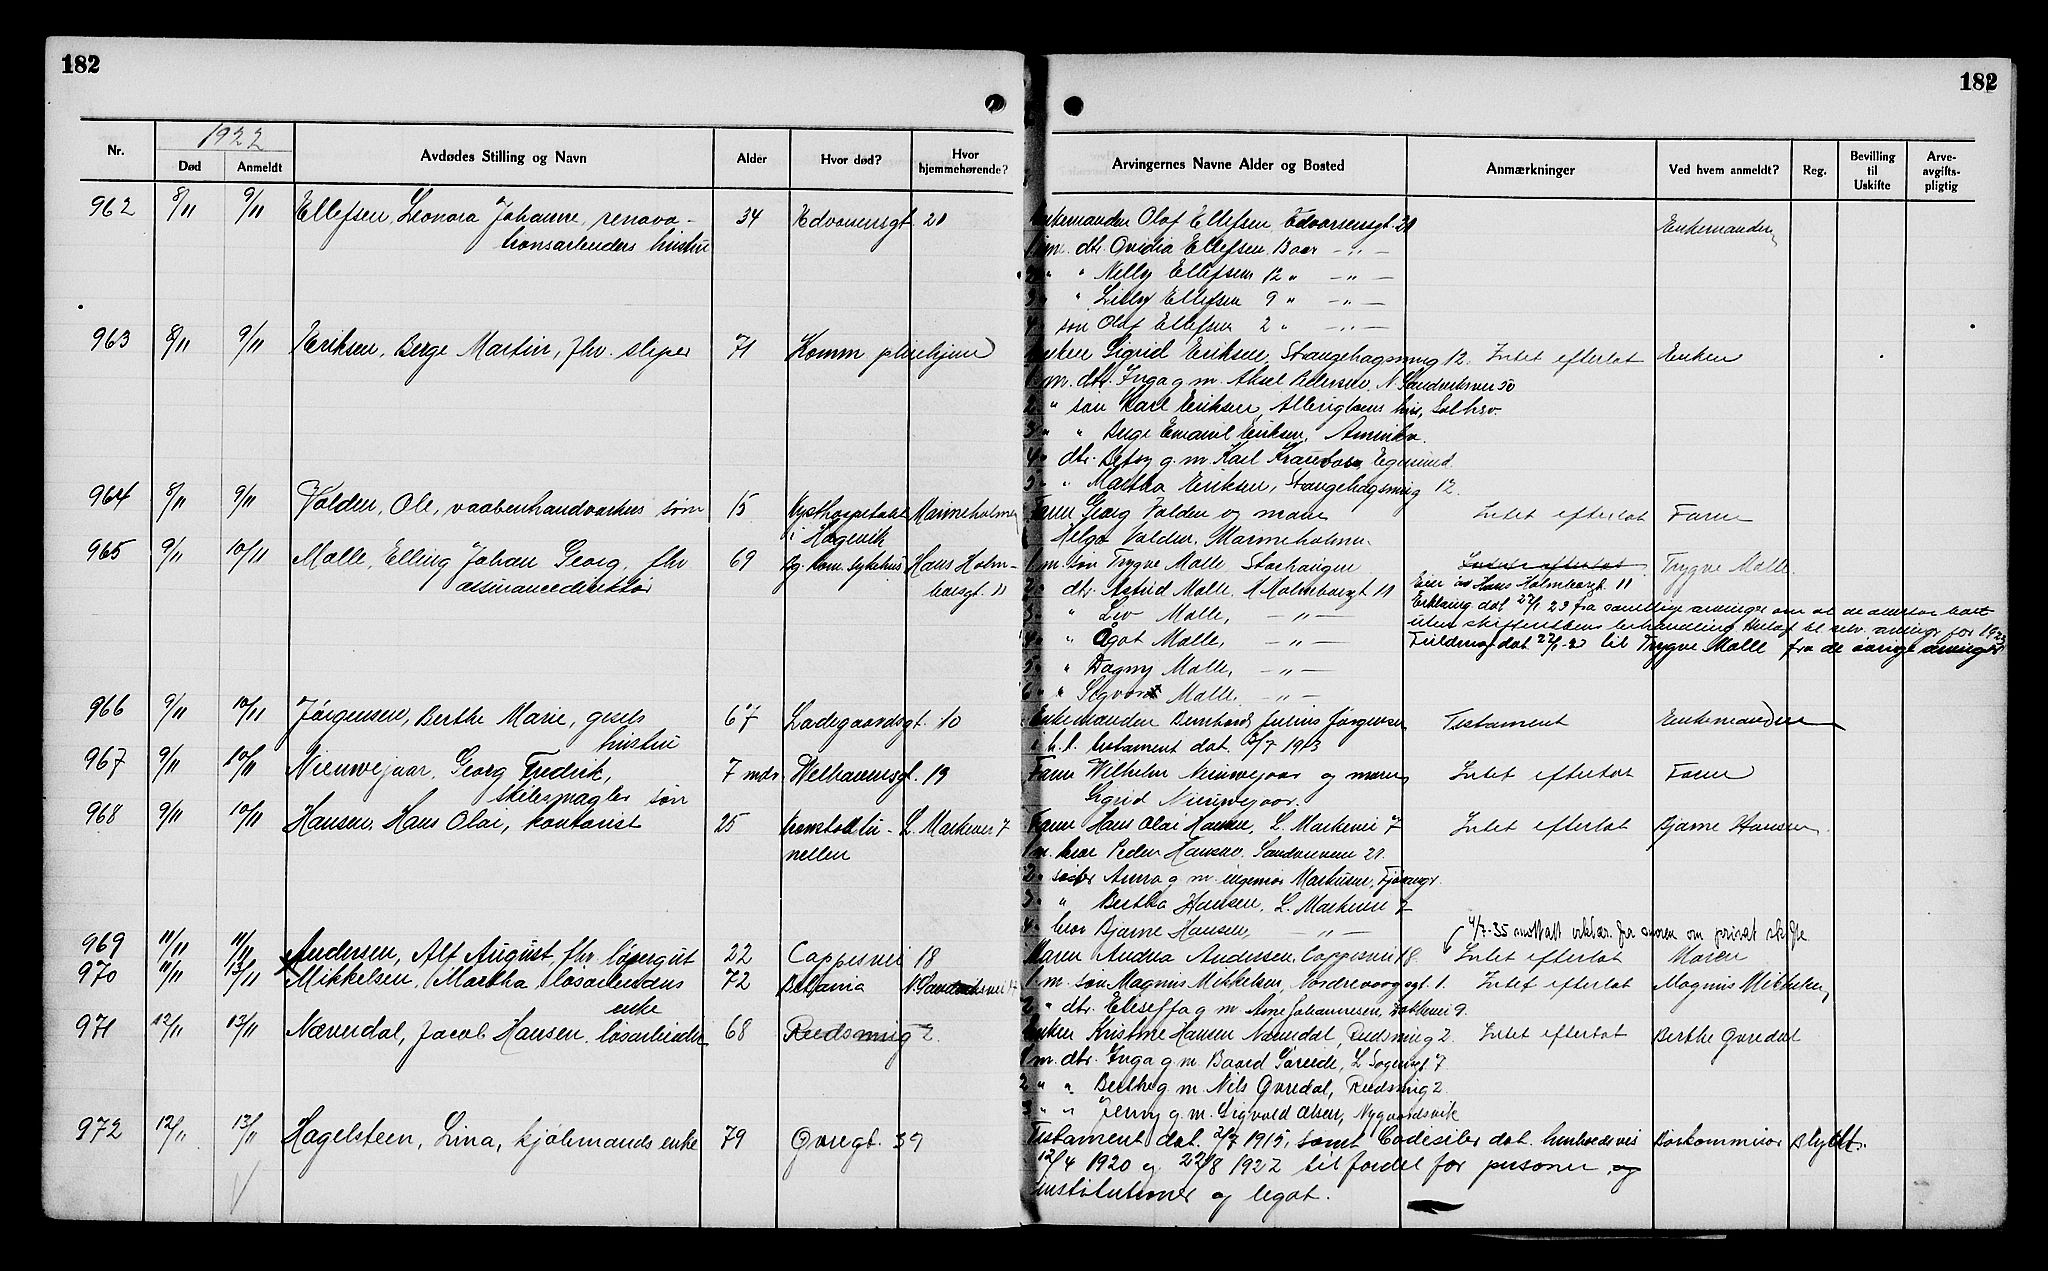 182
182
Nr.
1922
Død
Anmeldt
Avdødes Stilling og Navn
Alder
Hvor død?
Hvor hjemmehørende?
Arvingernes Navne Alder og Bosted
Anmærkninger
Ved hvem anmeldt?
Reg.
Bevilling til Uskifte
Arve-avgifts-pligtig
962 8/11 9/11 Ellefsen, Leonora Johanne, renova- 34 Edvardsensgt. 20 Enkemanden Olaf Ellefsen Edvardsensgt. 20 Enkemanden
tionsarbeiders hustru 1 m. dtr. Ovidia Ellefsen
2 " " Nelly Ellefsen 12 " — " —
3 " " Lilly Ellefsen 9 " — " —
4 " søn Olaf Ellefsen 2 " — " —
963 8/11 9/11 Eriksen, Berge Martin, fhv. sliper 71 Komm. pleiehjem Enken Sigrid Eriksen, Stangehagsmug 12. Intet efterlot Enken
1 m. dtr. Inga g. m. Aksel N. Sandviksvei 50
2 " søn Karl Eriksen
3 " " Berge Emanuel Eriksen, Amerika.
4 " dtr. Betsy g. m. Karl Egersund.
5 " " Martha Eriksen, Stangehagsmug 12.
964 8/11 9/11 Valden, Ole, vaabenhandverkers søn 15 Kysthospitalet Marineholmen Faren Georg Valden og moren Intet efterlot Faren
i Hagevik Helga Valden, Marineholmen.
965 9/11 10/11 Malle, Elling Johan Georg, fhv. 69 Bg. kom. sykehus Hans Holm- 1 m. søn Trygve Malle, Stavanger Intet efterlot Trygve Malle.
assurancedirektør boesgt. 11 2 " dtr. Astrid Malle, H. Holmboesgt 11 Eier av Hans Holmboesgt. 11
3 " " Liv Malle, — " — Erklæring dat. 27/1 23 fra samtlige arvinger om at de
4 " " Ågot Malle, — " — uten skifterettens behandling
5 " " Dagny Malle, — " — Fuldmagt dat. 27/1-23 til Trygve Malle fra de øvrige arvinger
6 " " Sigvor Malle. — " —
966 9/11 10/11 Jørgensen, Berthe Marie, gjests 67 Ladegaardsgt. 10 Enkemanden Bernhard Julius Jørgensen Testament Enkemanden
hustru i h. t. testament dat. 3/7 1913
967 9/11 10/11 Nieuwejaar, Georg Fredrik, 7 mdr. Welhavensgt. 19 Faren Wilhelm Nieuwejaar og moren Intet efterlot Faren
skibsmægler søn Sigrid Nieuwejaar.
968 9/11 10/11 Hansen, Hans Olai, kontorist 25 L. Markevei 7 Faren Hans Olai Hansen, L. Markevei 7 Intet efterlot Bjarne Hansen.
1 m. bror Peder Hansen, Sandviksveien 21.
2 " søster Anna g. m. ingeniør Markusen, Fjøsanger.
3 " " Bertha Hansen, L. Markevei 7
4 " bror Bjarne Hansen, — " —
4/7-35 mottatt erklær. fra moren om privat skifte
969 11/11 11/11 Andersen, Alf August, fhv. løpergut 22 Cappesvei 18 Moren Andrea Andersen, Cappesvei 18. Intet efterlot Moren
970 11/11 13/11 Mikkelsen, Martha løsarbeiders 72 Betania N. Sandviksvei 1 m. søn Magnus Mikkelsen, Intet efterlot Magnus Mikkelsen
enke 2 " dtr. Elisef g. m. Arne Johannesen, 9.
971 12/11 13/11 Næverdal, Jacob Hansen, løsarbeider 68 Rudsmug 2. Enken Kristine Hansen Næverdal, Rudsmug 2. Intet efterlot Berthe Øvredal
1 m. dtr. Inga g. m. Baard 7
2 " " Berthe g. m. Nils Øvredal, Rudsmug 2
3 " " Jenny g. m. Sigvald Olsen, Nygaardsvik
972 12/11 13/11 Hagelsteen, Lina, kjøbmands enke 79 Øvregt. 39 Testament dat. 2/7 1915, samt Codesiler dat. henholdsvis Bokommisær Blydt.
12/4 1920 og 22/8 1922 til fordel for personer og
institutioner og legat.